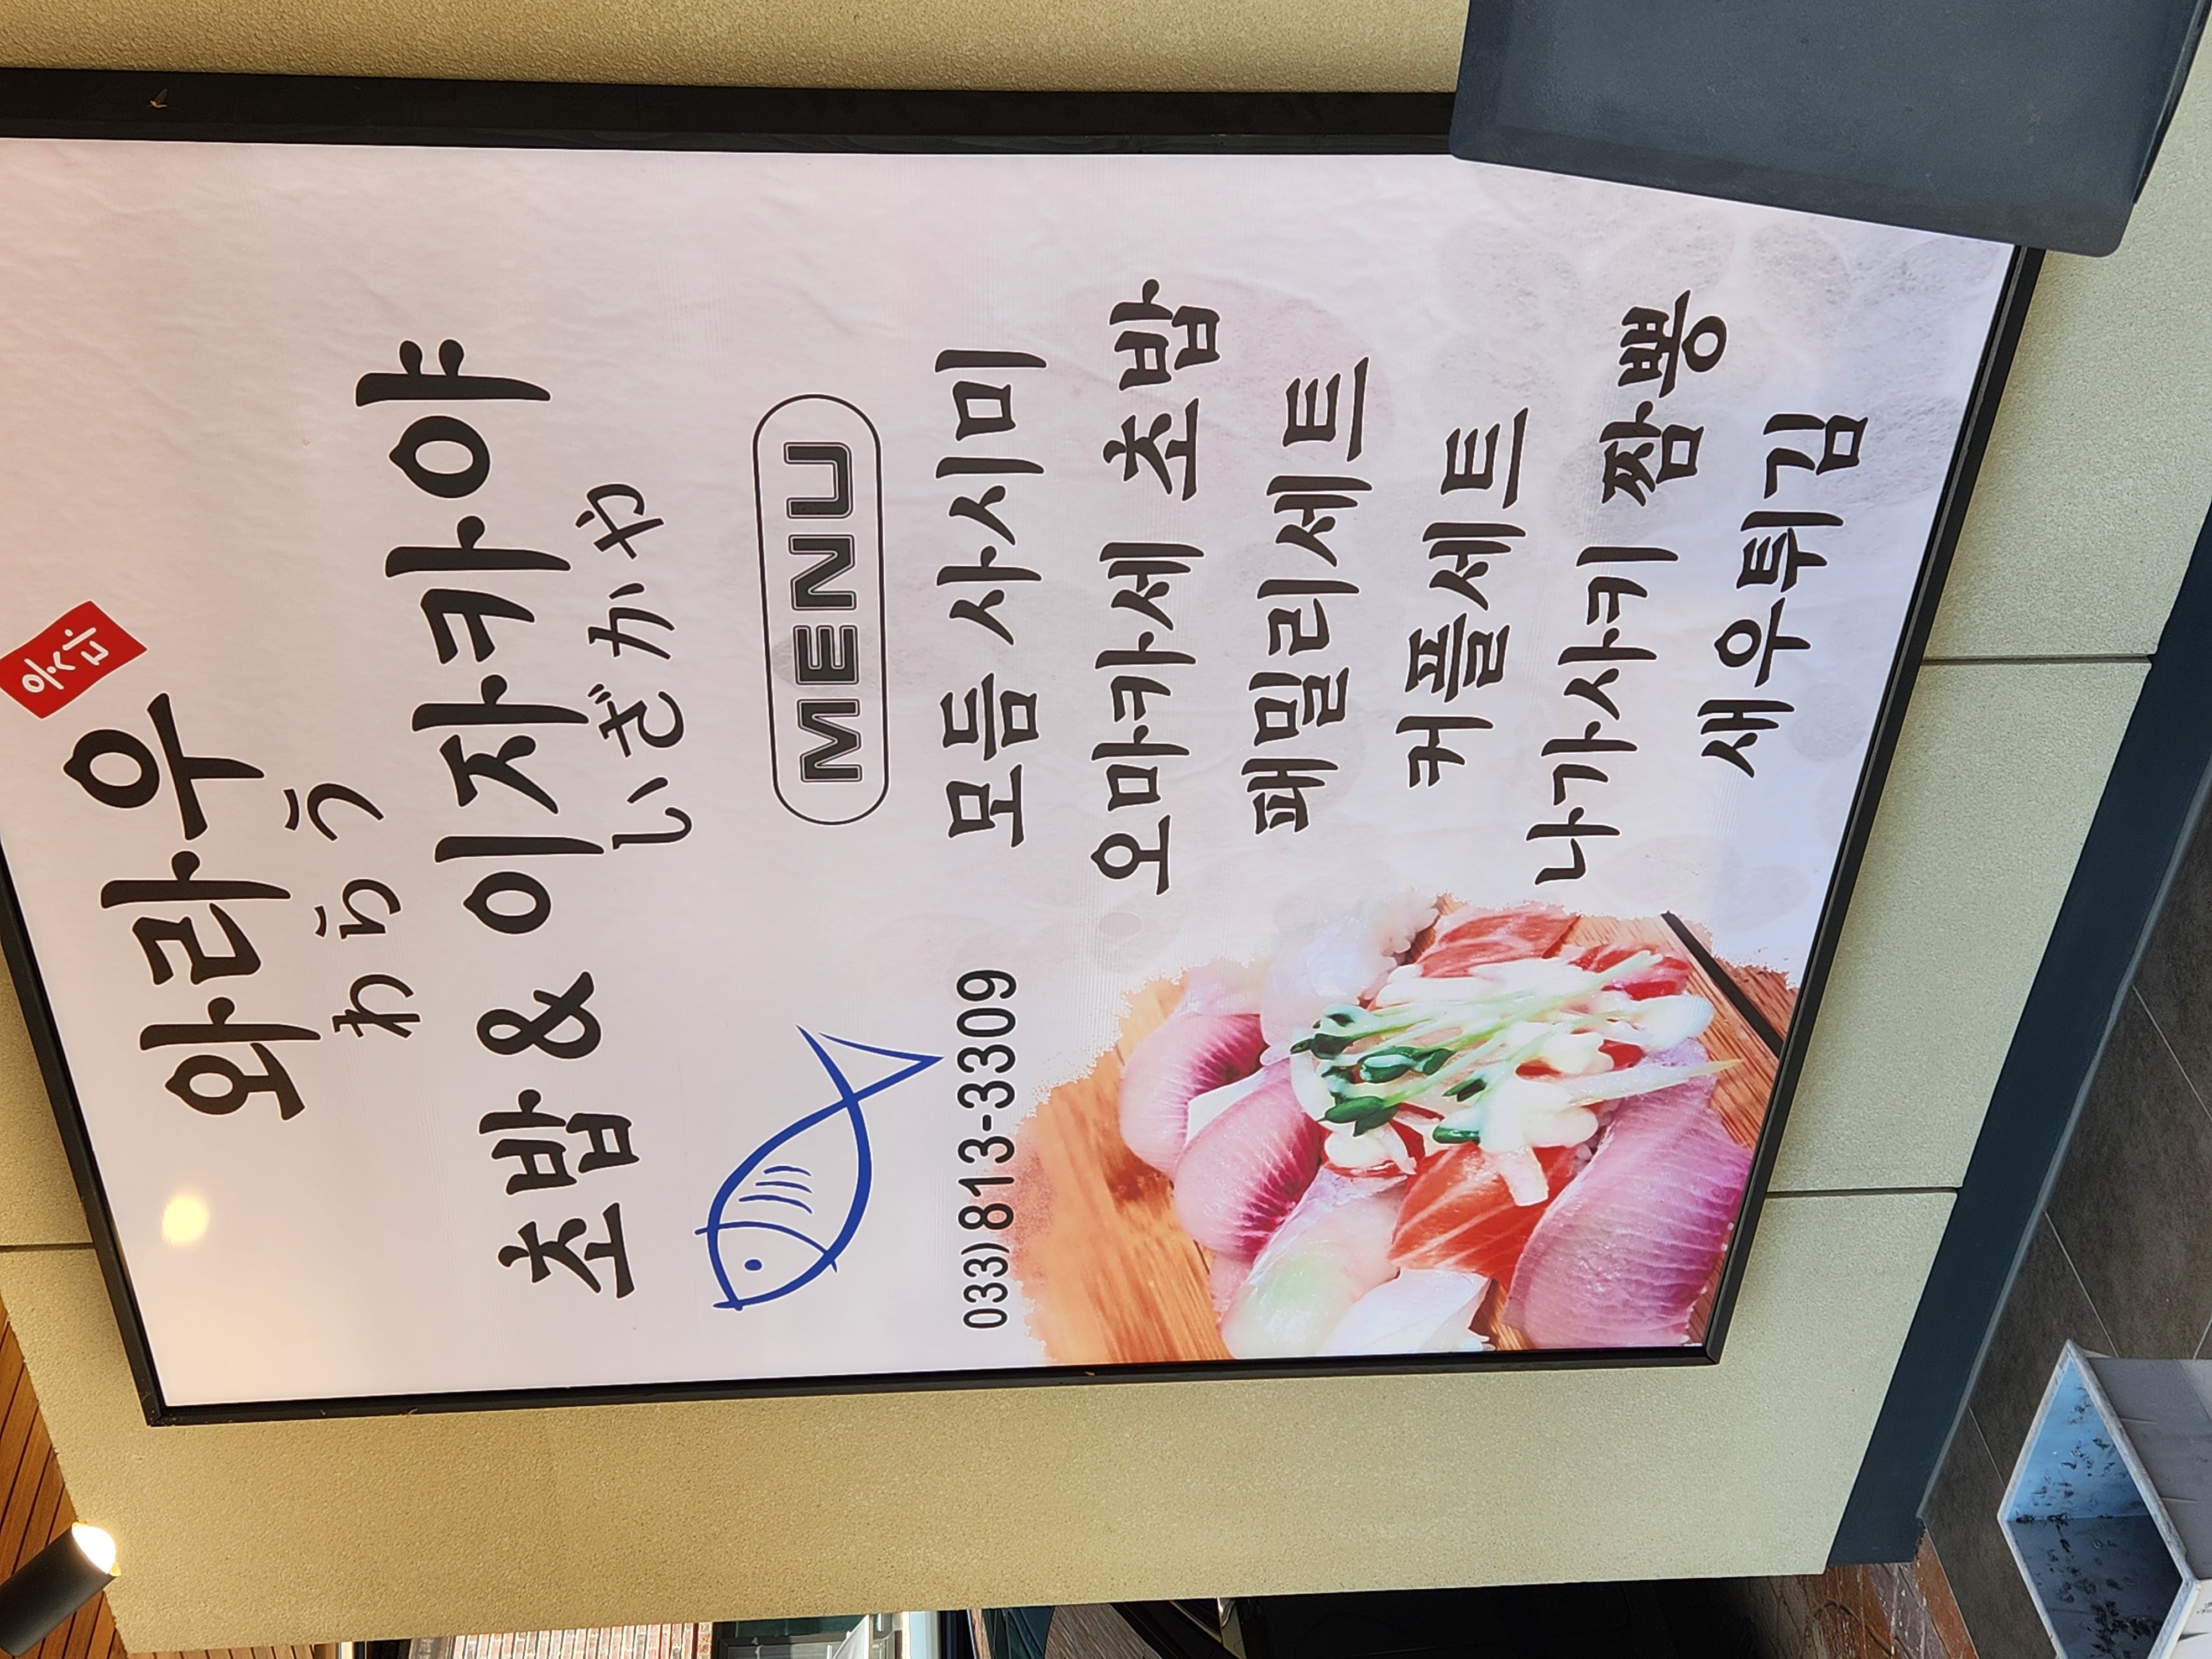 와라우
스시
わらう
초밥 & 이자카야
いざかや
MENU
033)813-3309
모듬 사시미
오마카세 초밥
패밀리세트
커플세트
나가사키 짬뽕
새우튀김